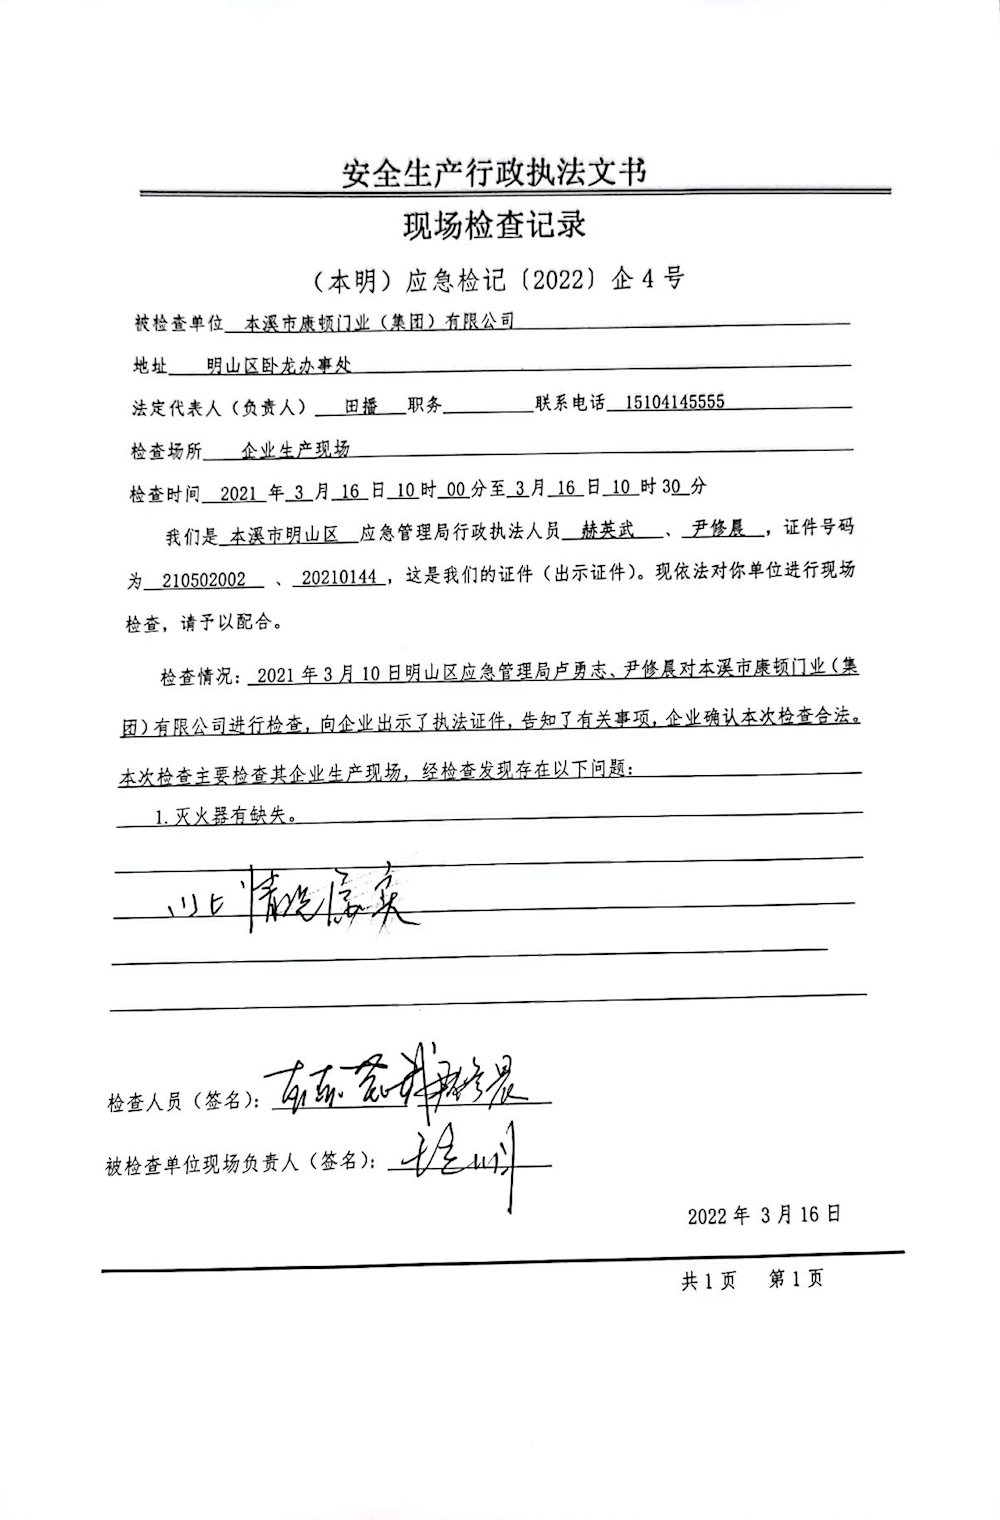 安全生产行政执法文书
现场检查记录
（本明）应急检记〔2022〕企4号
被检查单位 本溪市康顿门业（集团）有限公司
地址 明山区卧龙办事处
法定代表人（负责人） 田播 职务 联系电话 15104145555
检查场所 企业生产现场
检查时间 2021 年 3 月 16 日 10 时 00 分至 3 月 16 日 10 时 30 分
我们是 本溪市明山区 应急管理局行政执法人员 赫英武 、 尹修晨 ，证件号码
为 210502002 、 20210144 ，这是我们的证件（出示证件）。现依法对你单位进行现场
检查，请予以配合。
检查情况： 2021 年 3 月 10 日明山区应急管理局卢勇志、尹修晨对本溪市康顿门业（集
团）有限公司进行检查，向企业出示了执法证件，告知了有关事项，企业确认本次检查合法。
本次检查主要检查其企业生产现场，经检查发现存在以下问题：
1. 灭火器有缺失。
以上情况属实
检查人员（签名）： 赫英武 尹修晨
被检查单位现场负责人（签名）：
2022 年 3 月 16 日
共 1 页 第 1 页